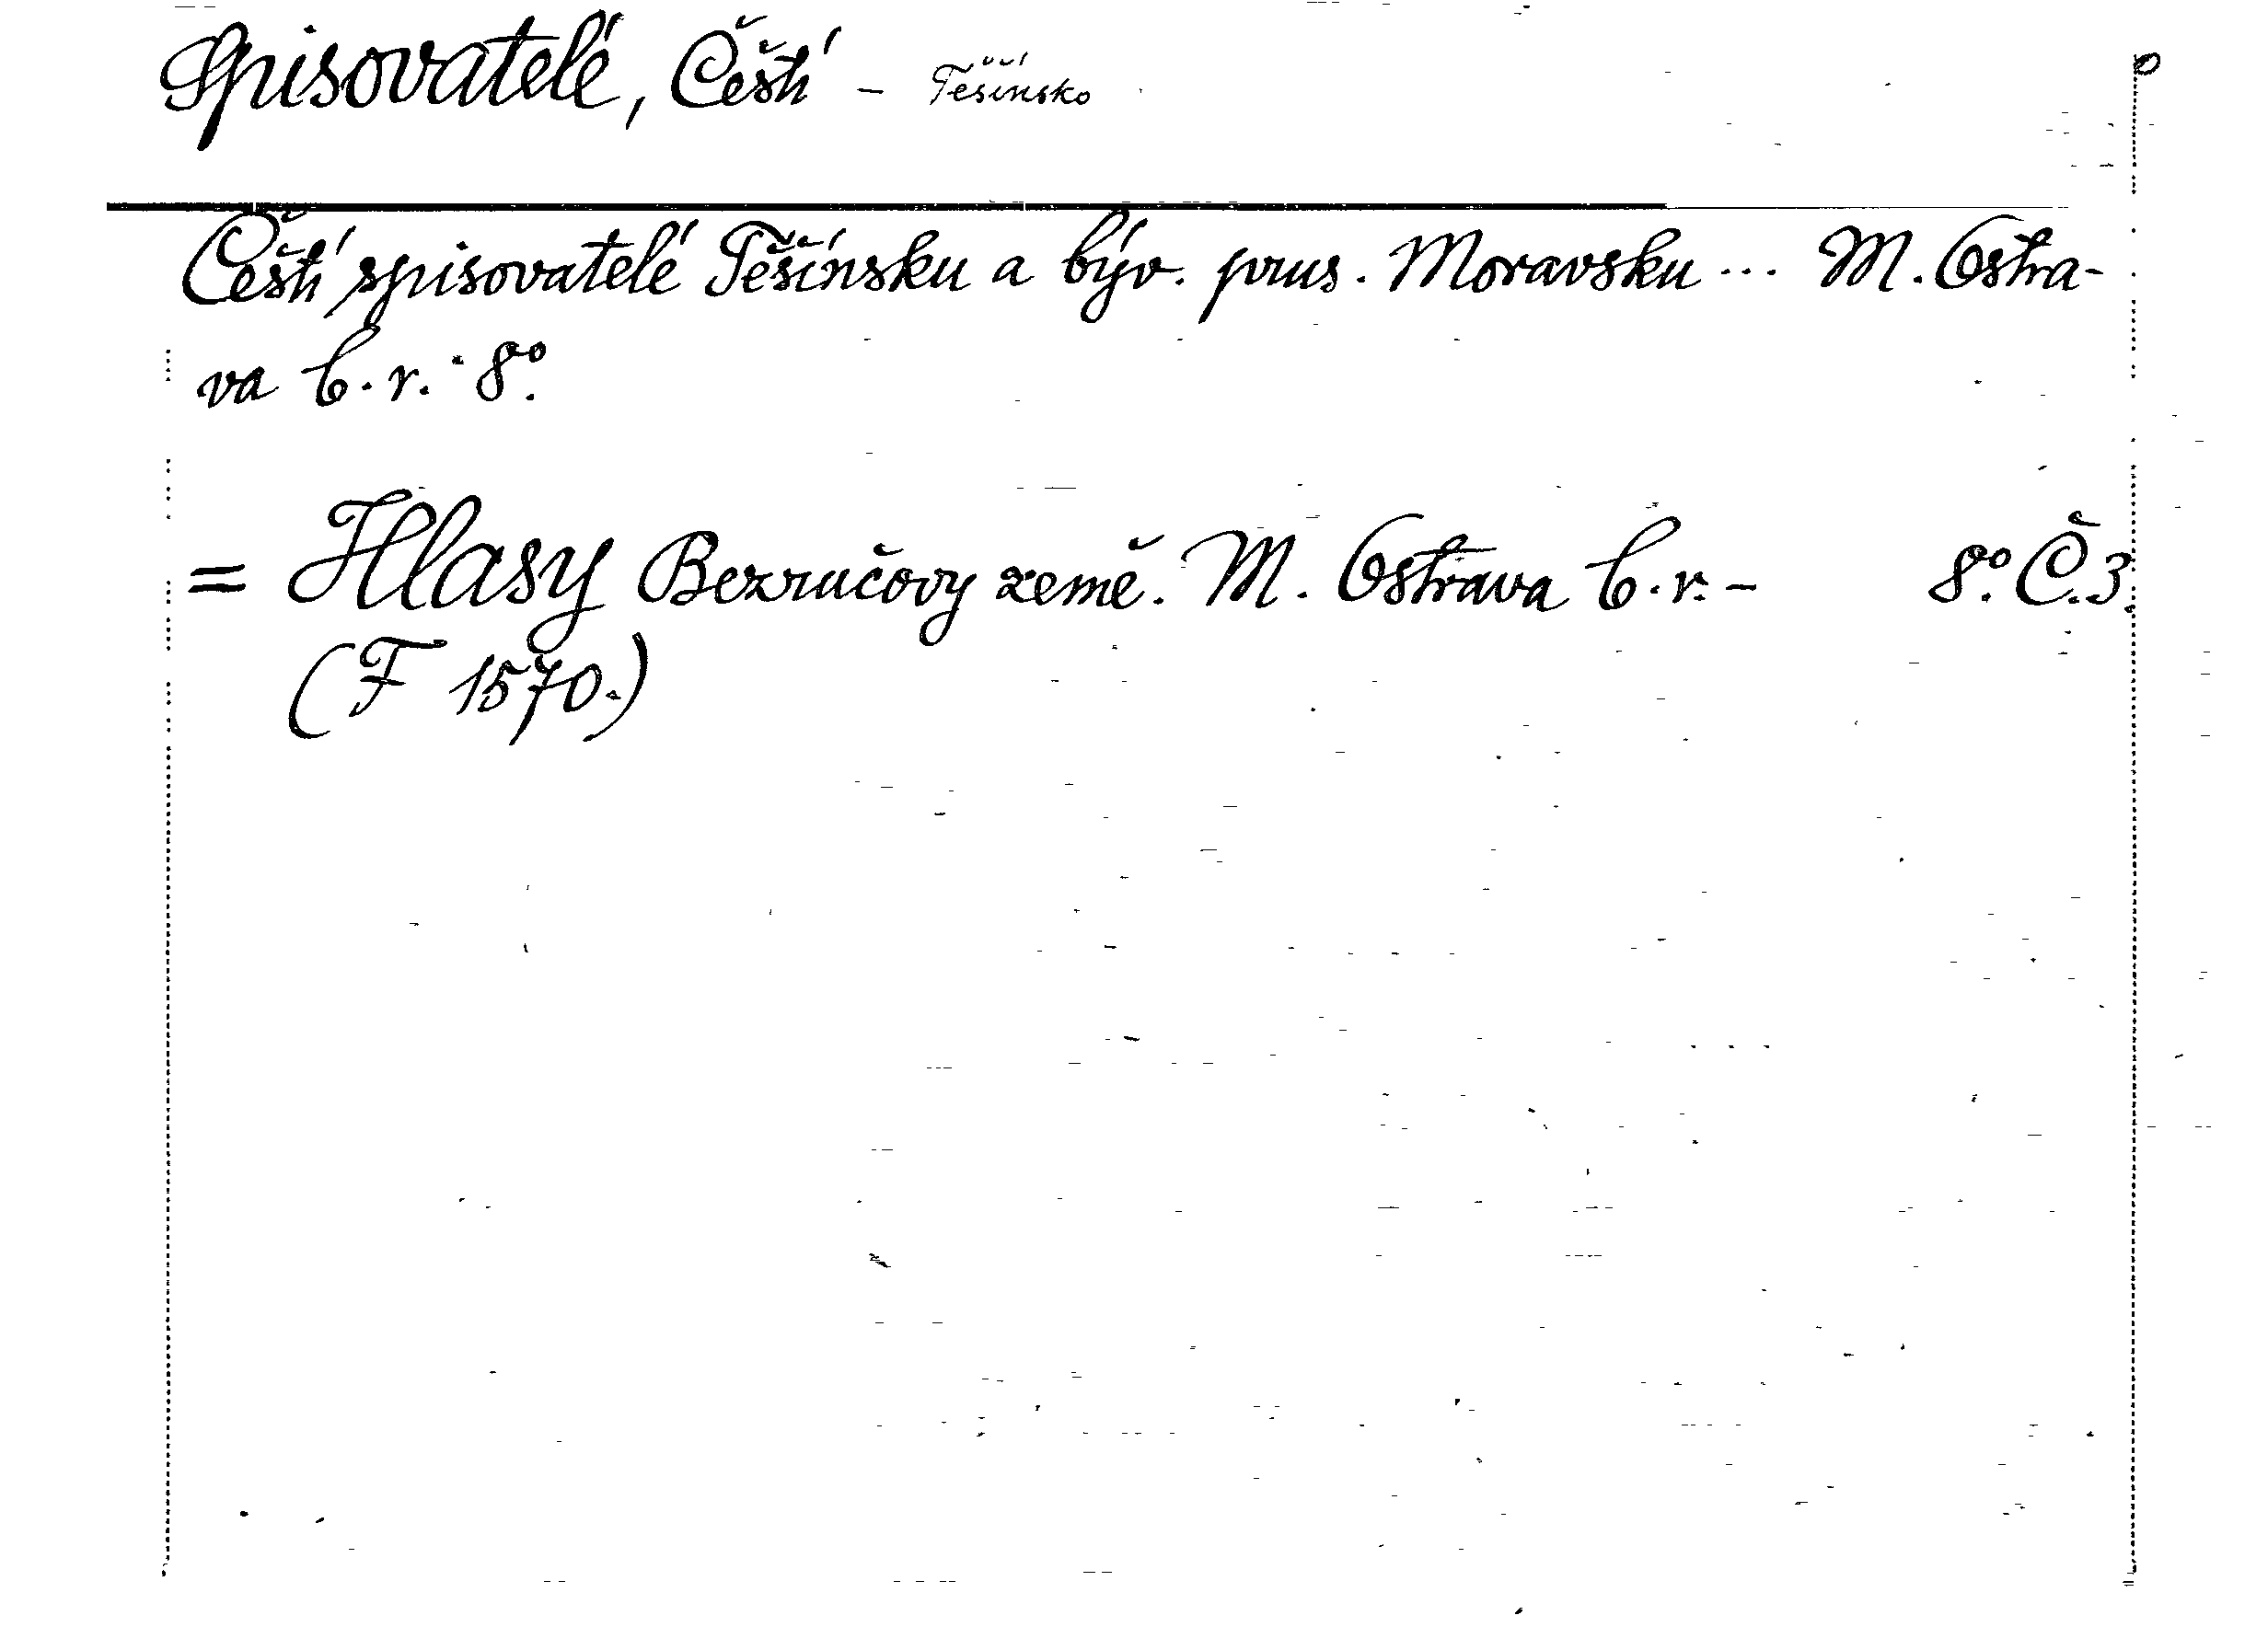 Spisovatelé, Čeští – Těšínsko
Čeští spisovatelé Těšínsku a býv. prus. Moravsku ... M. Ostra-
va b. r. 8°.
= Hlasy Bezručovy země. M. Ostrava b. r. – 8°. Č. 3.
(F 1570.)